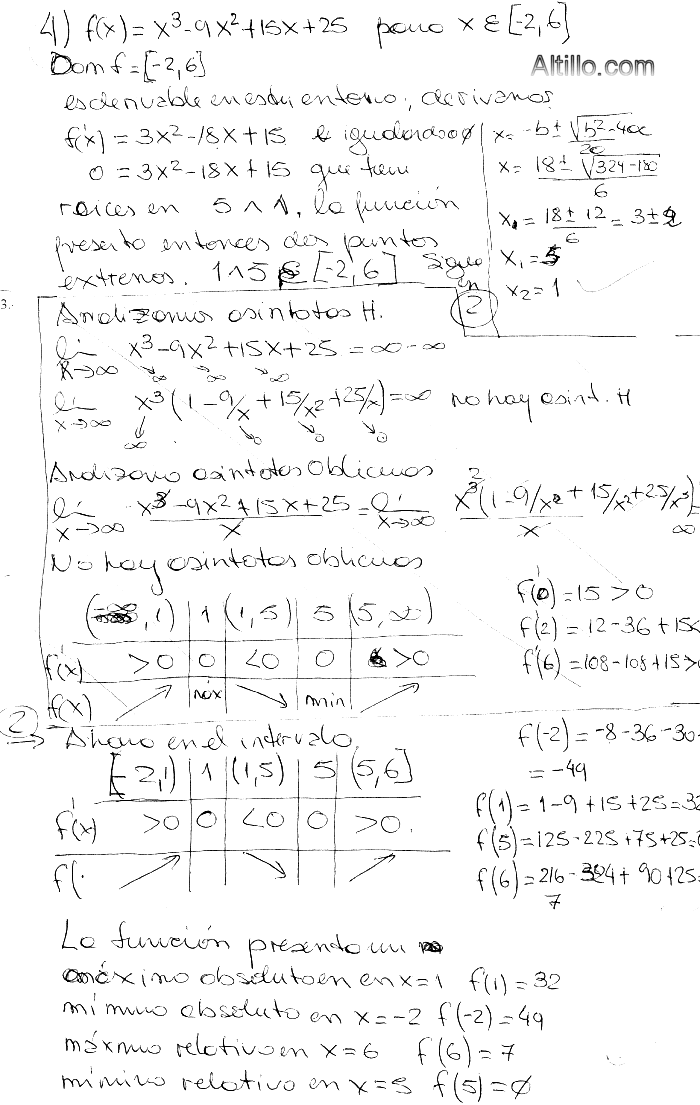 4) f(x) = x³-9x²+15x+25 para x ∈ [-2,6]
Altillo.com
Dom f = [-2,6]
es derivable en este entorno, derivamos
f'(x) = 3x²-18x+15 e igualando a 0
0 = 3x²-18x+15 que tiene
raíces en 5 ∧ 1, la función
presenta entonces dos puntos
extremos. 1∧5 ∈ [-2,6] Sigue en 2
x = -b ± √(b²-4ac) / 2a
x = 18 ± √(324-180) / 6
x = 18 ± 12 / 6 = 3 ± 2
x₁ = 5
x₂ = 1
3.-
Analizamos asintotas H.
lí x→∞ x³-9x²+15x+25 = ∞-∞
→∞ →∞ →∞
lí x→∞ x³(1-9/x+15/x²+25/x) = ∞ no hay asint. H
∞ 0 0 0
Analizamo asintotas Oblicuas
lí x→∞ x³-9x²+15x+25 / x = lí x→∞ x³(1-9/x²+15/x²+25/x³) / x = ∞
2
No hay asintotas oblicuas
(-∞,1) | 1 | (1,5) | 5 | (5,∞)
f'(x) >0 | 0 | <0 | 0 | >0
f(x) ↗ | máx | ↘ | min | ↗
f'(0) = 15 > 0
f'(2) = 12-36+15<
f'(6) = 108-108+15>
2 → Ahora en el intervalo
[-2,1) | 1 | (1,5) | 5 | (5,6]
f'(x) >0 | 0 | <0 | 0 | >0.
f( ↗ ↘ ↗
f(-2) = -8-36-30-
= -49
f(1) = 1-9+15+25=32
f(5) = 125-225+75+25=
f(6) = 216-324+90+25=
7
La función presenta un
máximo absoluto en en x=1 f(1) = 32
mínimo absoluto en x=-2 f(-2) = 49
máxmo relativo en x=6 f(6) = 7
mínimo relativo en x=5 f(5) = 0